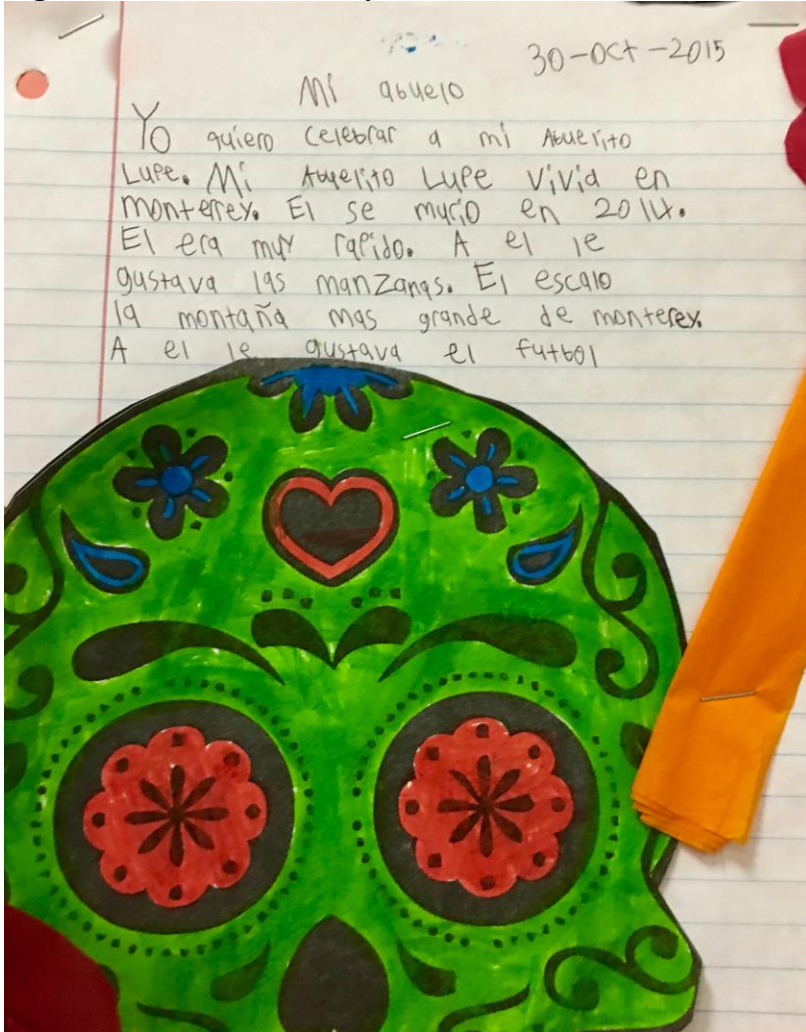 30-Oct-2015
Mi abuelo
Yo quiero celebrar a mi Abuelito
Lupe. Mi Abuelito Lupe vivia en
monterrey. El se murio en 2014.
El era muy rapido. A el le
gustava las manzanas. El escalo
la montaña mas grande de monterey.
A el le gustava el futbol